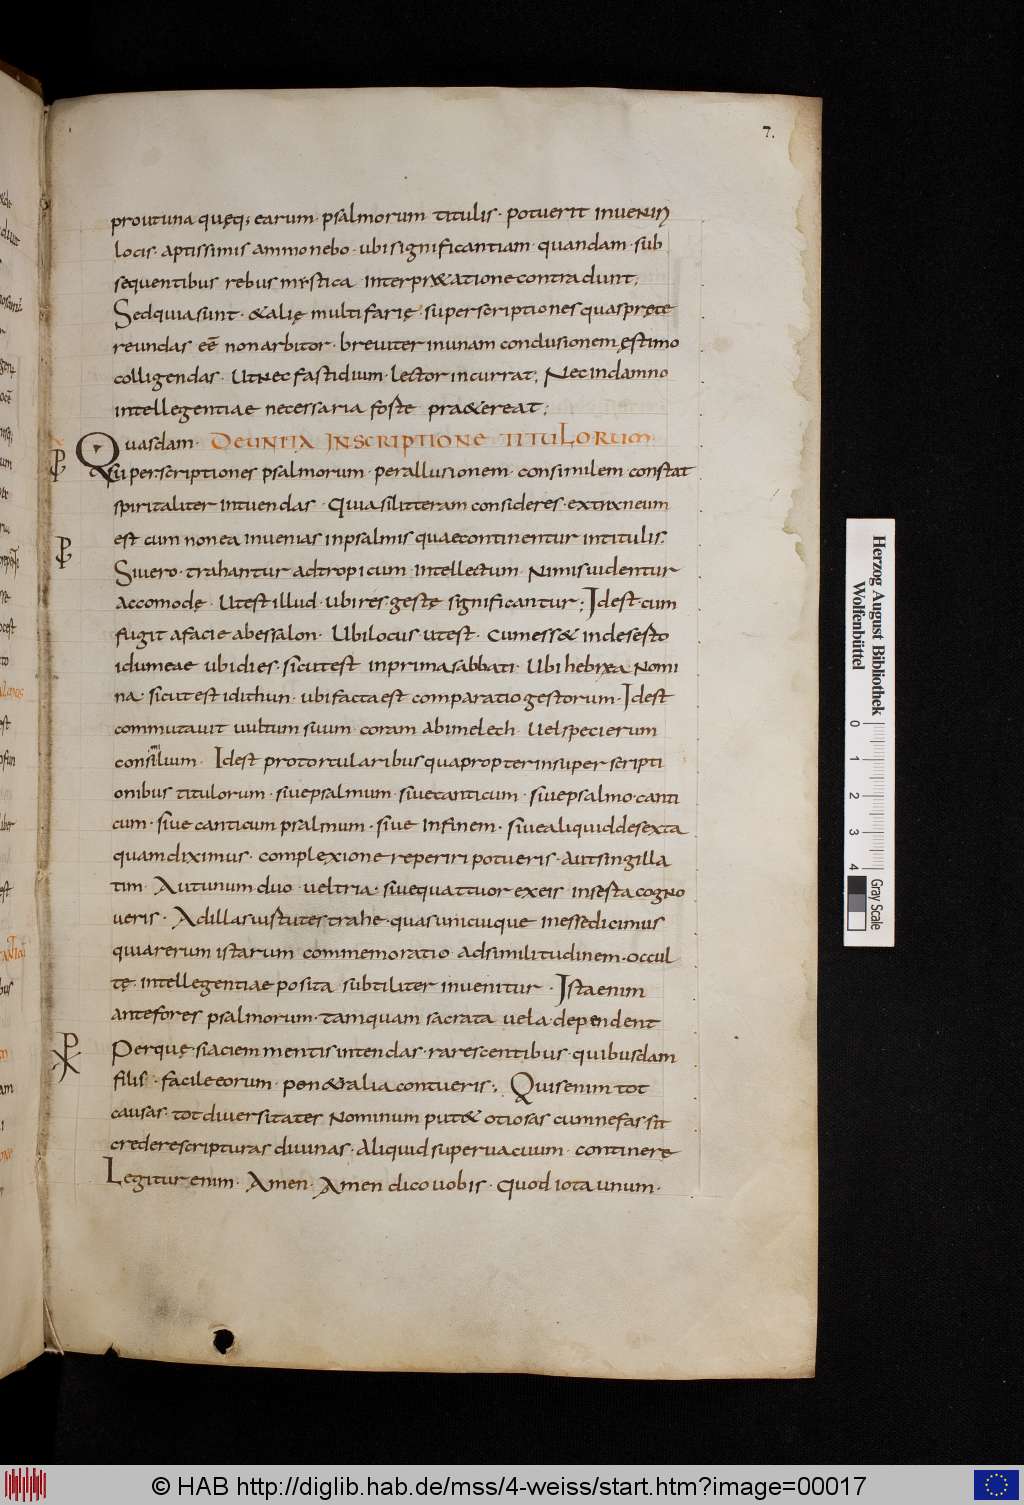 7.
prout una quęq; earum· psalmorum titulis· potuerit inueniri
locis· aptissimis ammonebo· ubi significantiam· quandam· sub
sequentibus rebus mistica interpr&atione contradunt;
Sed quia sunt· & alię multifarię· superscriptiones quas pręte
reundas eē non arbitor· breuiter in unam conclusionem ęstimo
colligendas· Ut nec fastidium· lector incurrat; Nec in damno
intellegentiae necessaria foste pra&ereat;
Quasdam· DE UNITIA INSCRIPTIONE TITULORUM·
superscriptiones psalmorum· per allusionem· consimilem constat
spiritaliter intuendas· Quia si litteram consideres· extraneum
est cum non ea inuenias in psalmis quae continentur in titulis;
Si uero· trahantur ad tropicum intellectum· Nimis uidentur
accomodę· Ut est illud· ubi res· gestę significantur; Id est· cum
fugit a facie abessalon· Ubi locus· ut est· cum ess& in desesto
idumeae ubi dies· sicut est in prima sabbati· Ubi hebrea Nomi
na· sicut est idithun· ubi facta est comparatio gestorum· Id est
commutauit uultum suum· coram abimelech· Uel specierum
consiluum· Id est pro torcularibus quapropter in superscripti
onibus titulorum· siue psalmum· siue canticum· siue psalmo· canti
cum· siue canticum psalmum· siue in finem· siue aliquid de sexta
quam diximus· complexione reperiri potueris· aut singilla
tim· Aut unum duo· uel tria· siue quattuor ex eis insesta cogno
ueris· Ad illas uistutes trahe· quas unicuique inesse dicimus
quia rerum istarum commemoratio· ad similitudinem· occul
tę· intellegentiae posita subtiliter inuenitur· Ista enim
ante fores psalmorum· tamquam sacrata uela· dependent
Per quę· si aciem mentis intendas· rarescentibus· quibusdam
filis· facile eorum· pen&ralia contueris; Quis enim tot
causas· tot diuersitates Nominum put& otiosas cum nefas sit
credere scripturas diuinas· aliquid superuacuum· continerę
Legitur enim· Amen· Amen dico uobis· Quod iota unum·
Herzog August Bibliothek
Wolfenbüttel
0 1 2 3 4
Gray Scale
© HAB http://diglib.hab.de/mss/4-weiss/start.htm?image=00017